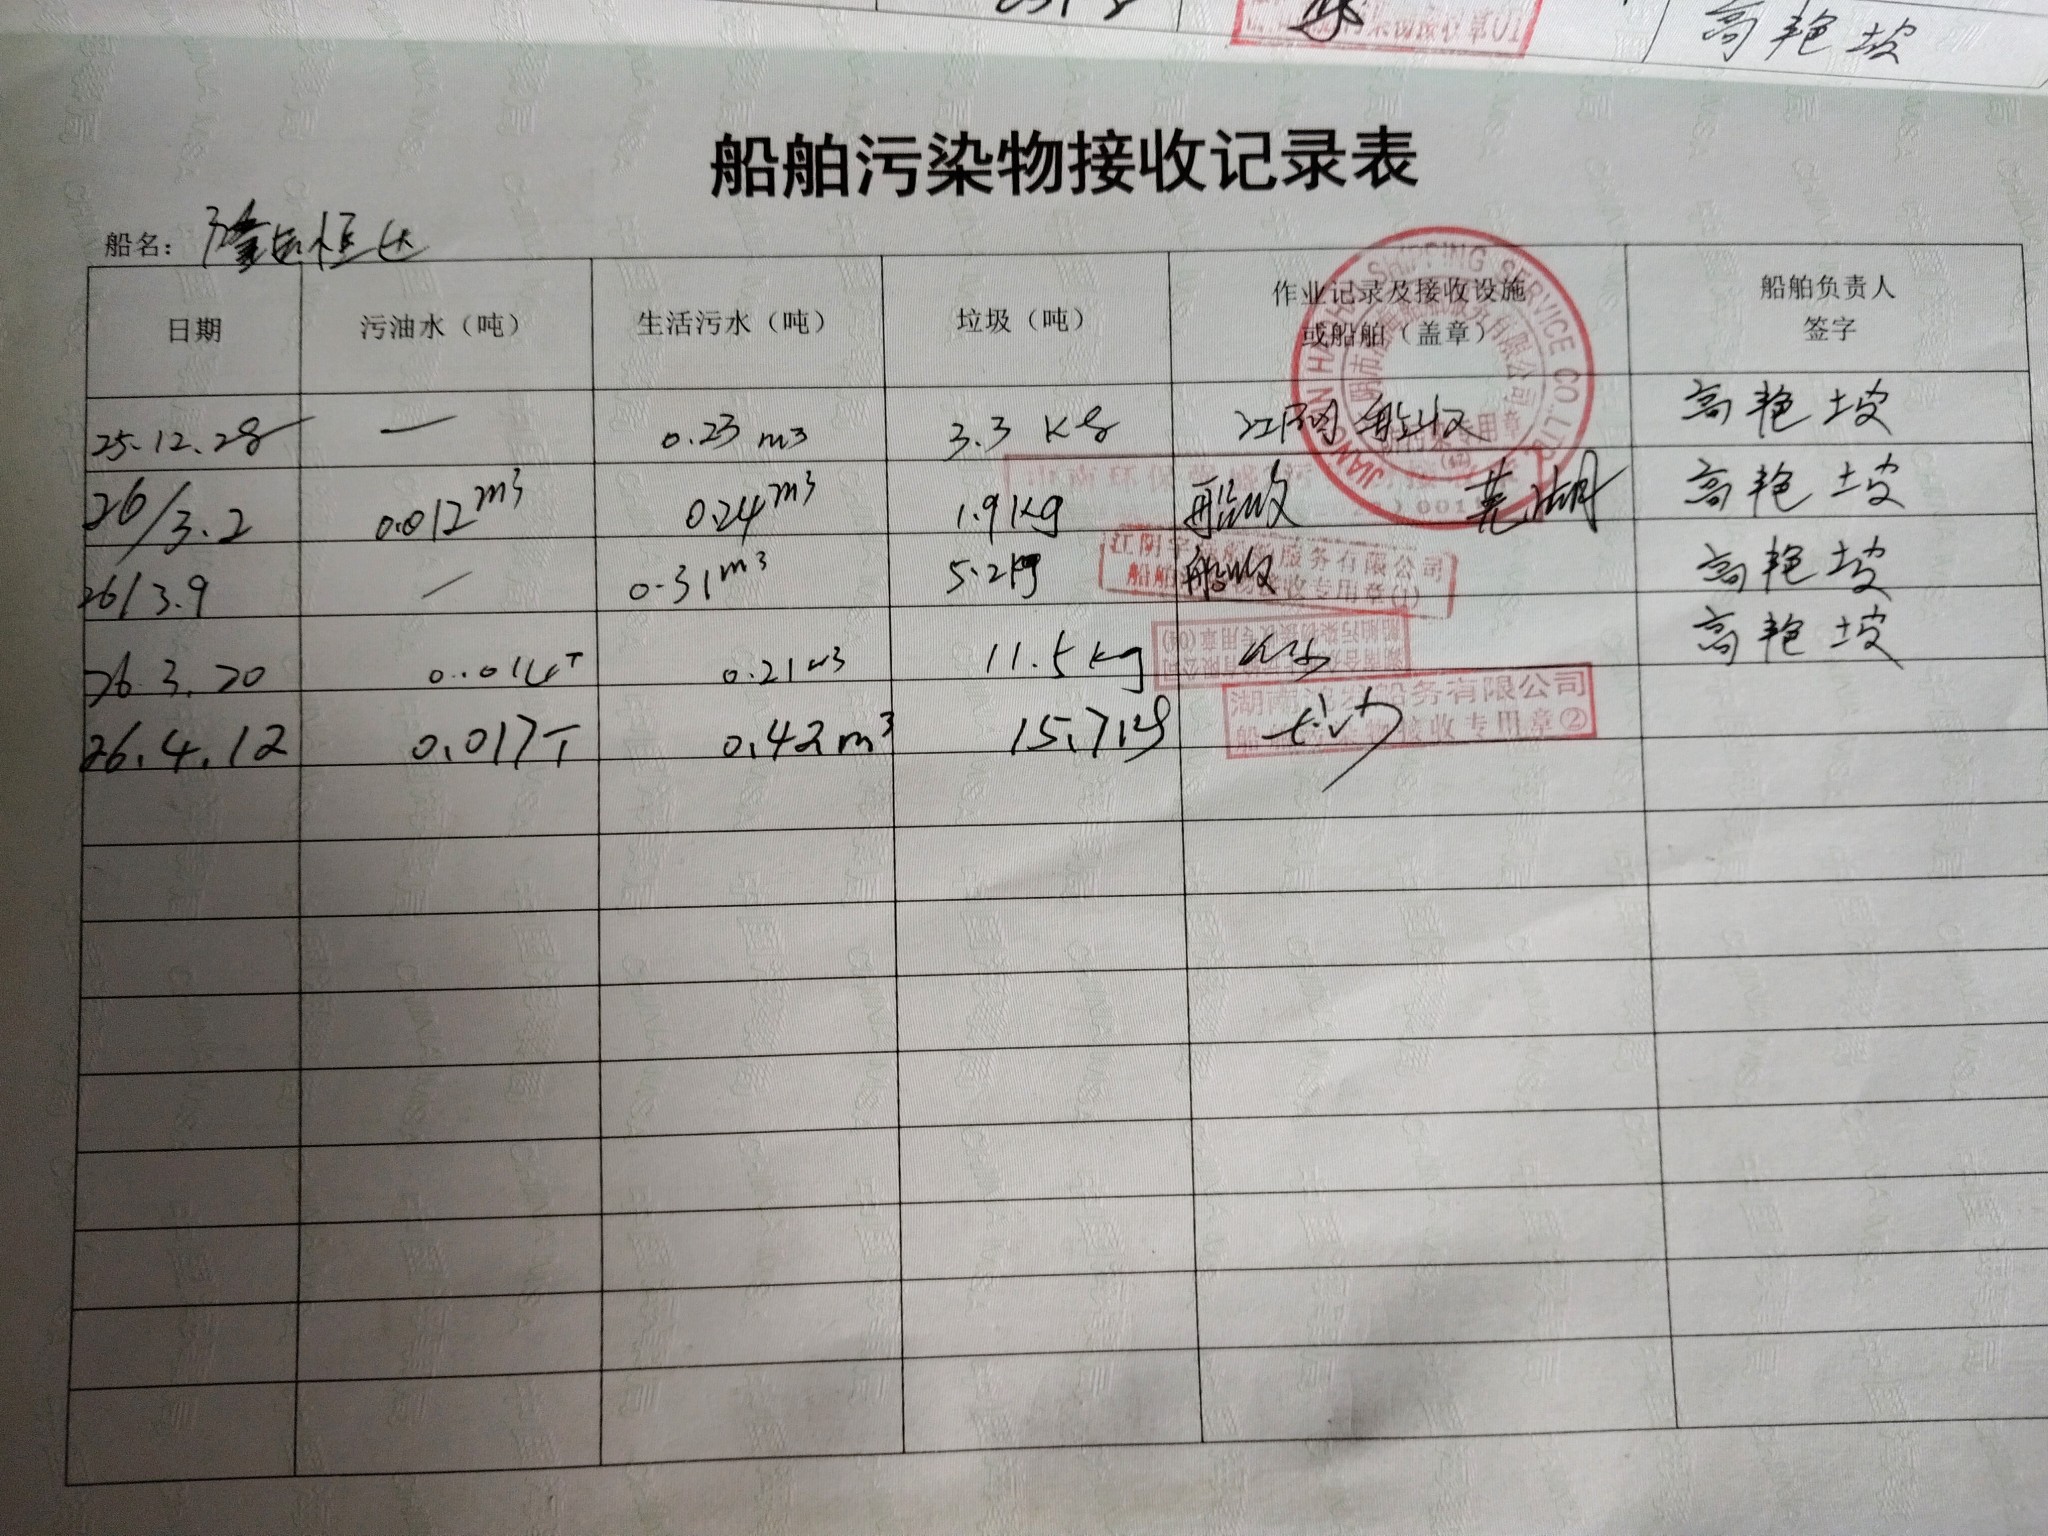 高艳坡
船舶污染物接收记录表
船名： 隆 恒达
日期 污油水（吨） 生活污水（吨） 垃圾（吨） 作业记录及接收设施或船舶（盖章） 船舶负责人签字
25.12.28 — 0.23 m3 3.3 Kg 江阴 船收 高艳坡
26/3.2 0.012 m3 0.24 m3 1.9 Kg 船收 芜湖 高艳坡
26/3.9 / 0.31 m3 5.2 kg 船收 高艳坡
26.3.20 0.21 m3 11.5 kg 高艳坡
26.4.12 0.017T 0.42 m3 15.7kg
SHIPPING SERVICE CO.,LTD
001
服务有限公司
接收专用章(1)
船舶污染物接收专用章(04)
湖南 船务有限公司
接收专用章②